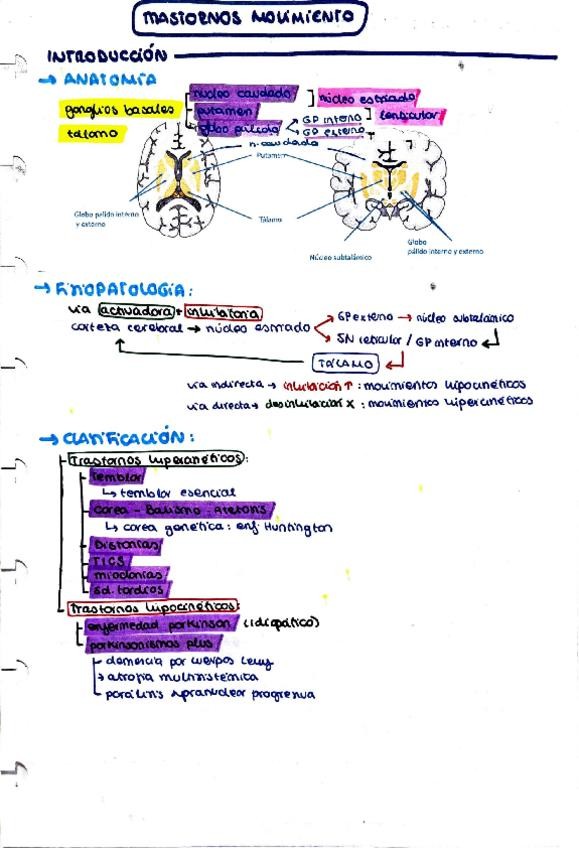 TRASTORNOS MOVIMIENTO
INTRODUCCIÓN
→ ANATOMÍA
ganglios basales
núcleo caudado
putamen
globo pálido
núcleo estriado
GP interno
GP externo
lenticular
tálamo
n. caudado
Putamen
Globo pálido interno
y externo
Tálamo
Núcleo subtalámico
Globo
pálido interno y externo
→ FISIOPATOLOGÍA:
vía activadora + inhibitoria
corteza cerebral → núcleo estriado
GP externo → núcleo subtalámico
SN reticular / GP interno
TÁLAMO
vía indirecta → inhibición ↑ : movimientos hipocinéticos
vía directa → desinhibición x : movimientos hipercinéticos
→ CLASIFICACIÓN:
Trastornos hipercinéticos:
Temblor
↳ temblor esencial
Corea - Balismo - Atetosis
↳ corea genética: enf. Huntington
Distonías
TICS
mioclonías
Trastornos hipocinéticos:
enfermedad parkinson (idiopático)
parkinsonismos plus
demencia por cuerpos Lewy
→ atrofia multisistémica
parálisis supranuclear progresiva